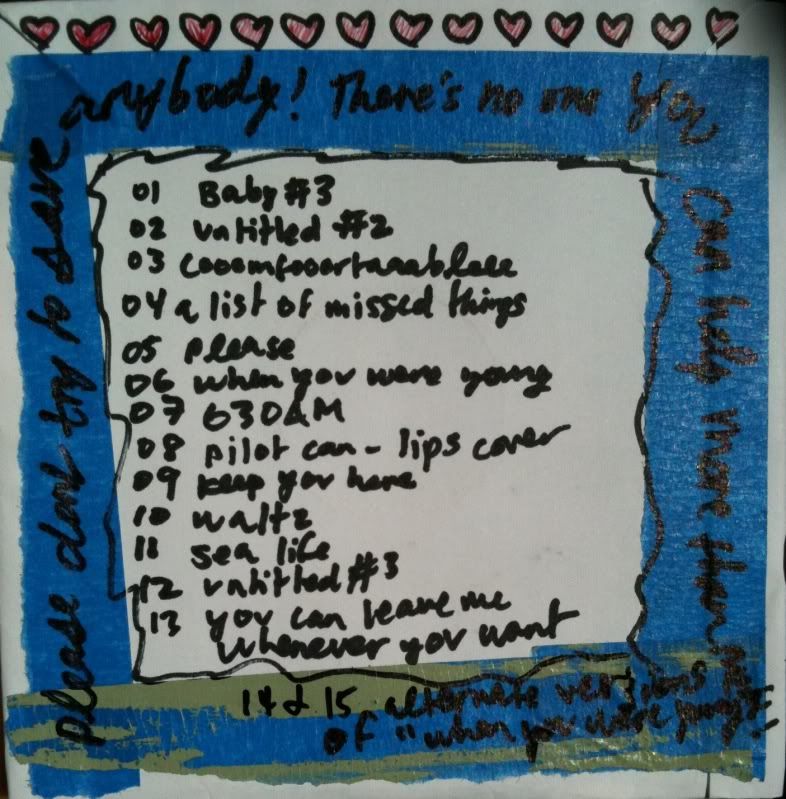 please dont try to save
anybody! There's no one you
can help more then
01 Baby #3
02 untitled #2
03 cooomfooortaaableee
04 a list of missed things
05 please
06 when you were young
07 630AM
08 pilot can - lips cover
09 keep you here
10 waltz
11 sea life
12 untitled #3
13 you can leave me
whenever you want
14 & 15 alternate versions
of "when you were young"